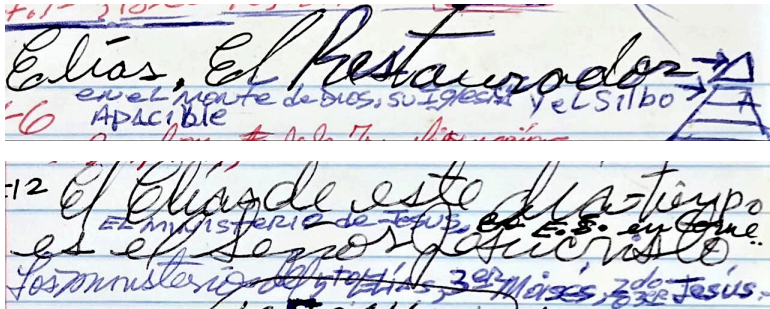 Elías, El Restaurador
en el Monte de Dios, su Iglesia y el Silbo
Apacible
-6
A
-12 El Elías de este día-tiempo
El ministerio de Jesús, en E.S. en Carne..
es el Señor Jesucristo
Los ministerios del 5to Elías, 3er Moisés, 2do Jesús.-